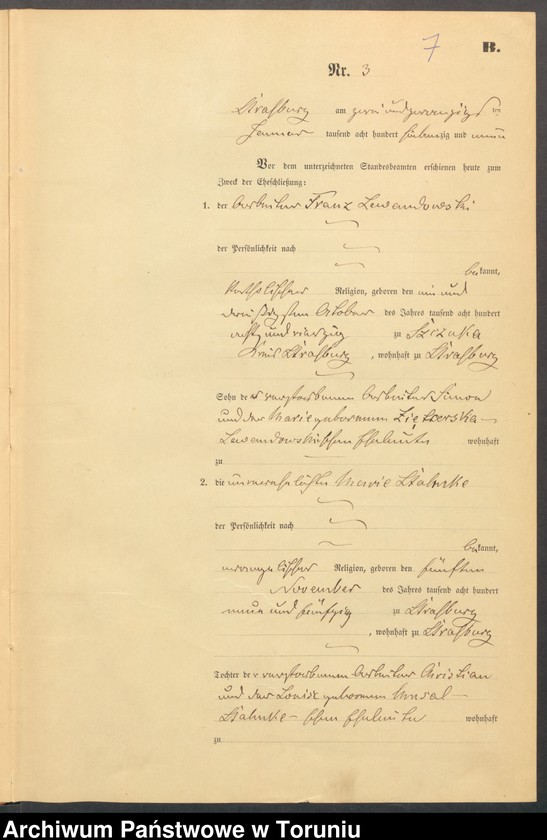 7
B.
Nr. 3
Straßburg am zwei und zwanzigst ten
Januar tausend acht hundert siebenzig und neun
Vor dem unterzeichneten Standesbeamten erschienen heute zum
Zweck der Eheschließung:
1. der Arbeiter Franz Lewandowski
der Persönlichkeit nach
bekannt,
katholischer Religion, geboren den ein und
dreißigsten October des Jahres tausend acht hundert
acht und vierzig zu Szczuka
Kreis Straßburg, wohnhaft zu Straßburg
Sohn der verstorbenen Arbeiter Simon
und der Marie geborenen
Lewandowskischen Eheleute wohnhaft
zu
2. die unverehelichte Marie Stahnke
der Persönlichkeit nach
bekannt,
evangelischer Religion, geboren den fünften
November des Jahres tausend acht hundert
neun und fünfzig zu Straßburg
, wohnhaft zu Straßburg
Tochter der verstorbenen Arbeiter Christian
und der Louise geborenen
Stahnke-schen Eheleute wohnhaft
zu
Archiwum Państwowe w Toruniu